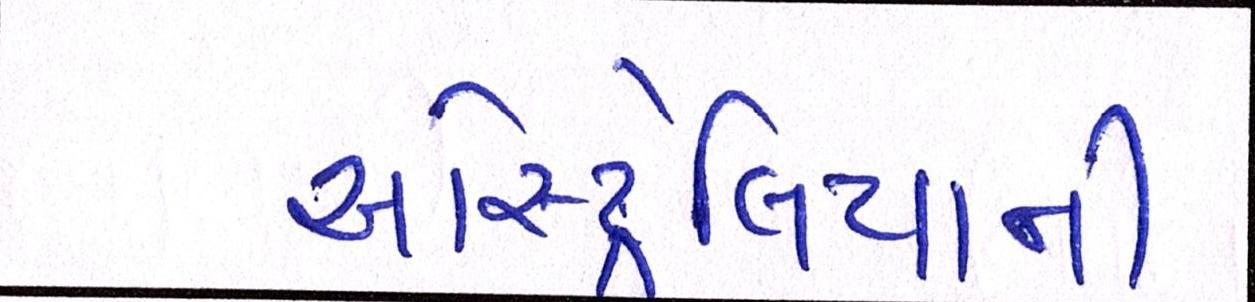 ઓસ્ટ્રેલિયાની